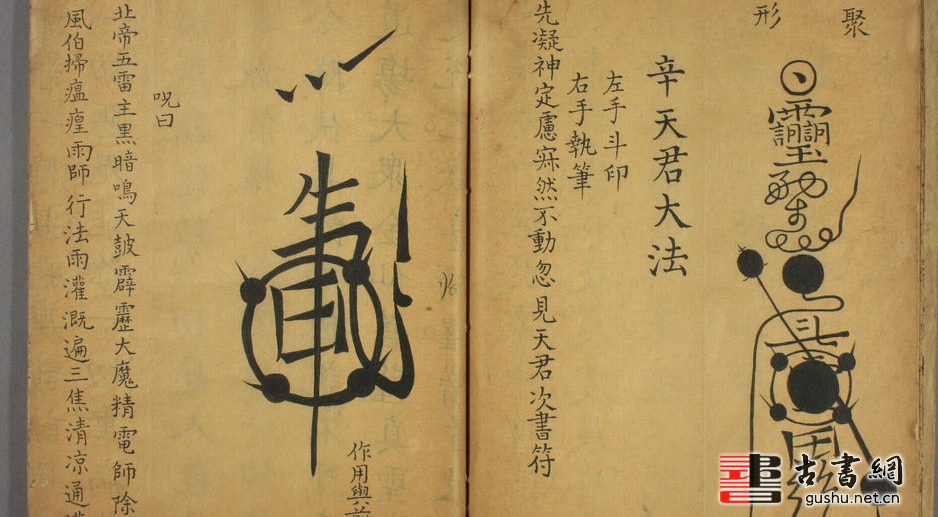 聚
形
辛天君大法
左手斗印
右手執筆
先凝神定慮寂然不動忽見天君次書符
作用與前
呪曰
北帝五雷主黑暗鳴天鼓霹靂大魔精電師除
風伯掃瘟㾮雨師行法雨灌溉遍三焦清凉通
古書網
gushu.net.cn